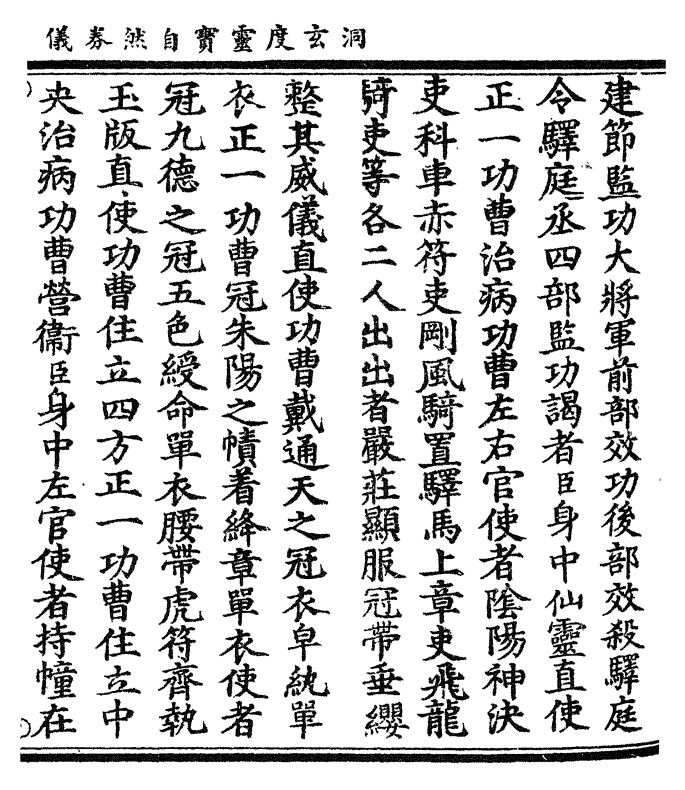 洞玄度靈寶自然券儀
建節監功大將軍前部效功後部效殺驛庭
令驛庭丞四部監功謁者臣身中仙靈直使
正一功曹治病功曹左右官使者陰陽神決
吏科車赤符吏剛風騎置驛馬上章吏飛龍
騎吏等各二人出出者嚴莊顯服冠帶垂纓
整其威儀直使功曹戴通天之冠衣皁紈單
衣正一功曹冠朱陽之幘着絳章單衣使者
冠九德之冠五色綬命單衣腰帶虎符齊執
玉版直使功曹住立四方正一功曹住立中
央治病功曹營衞臣身中左官使者持幢在